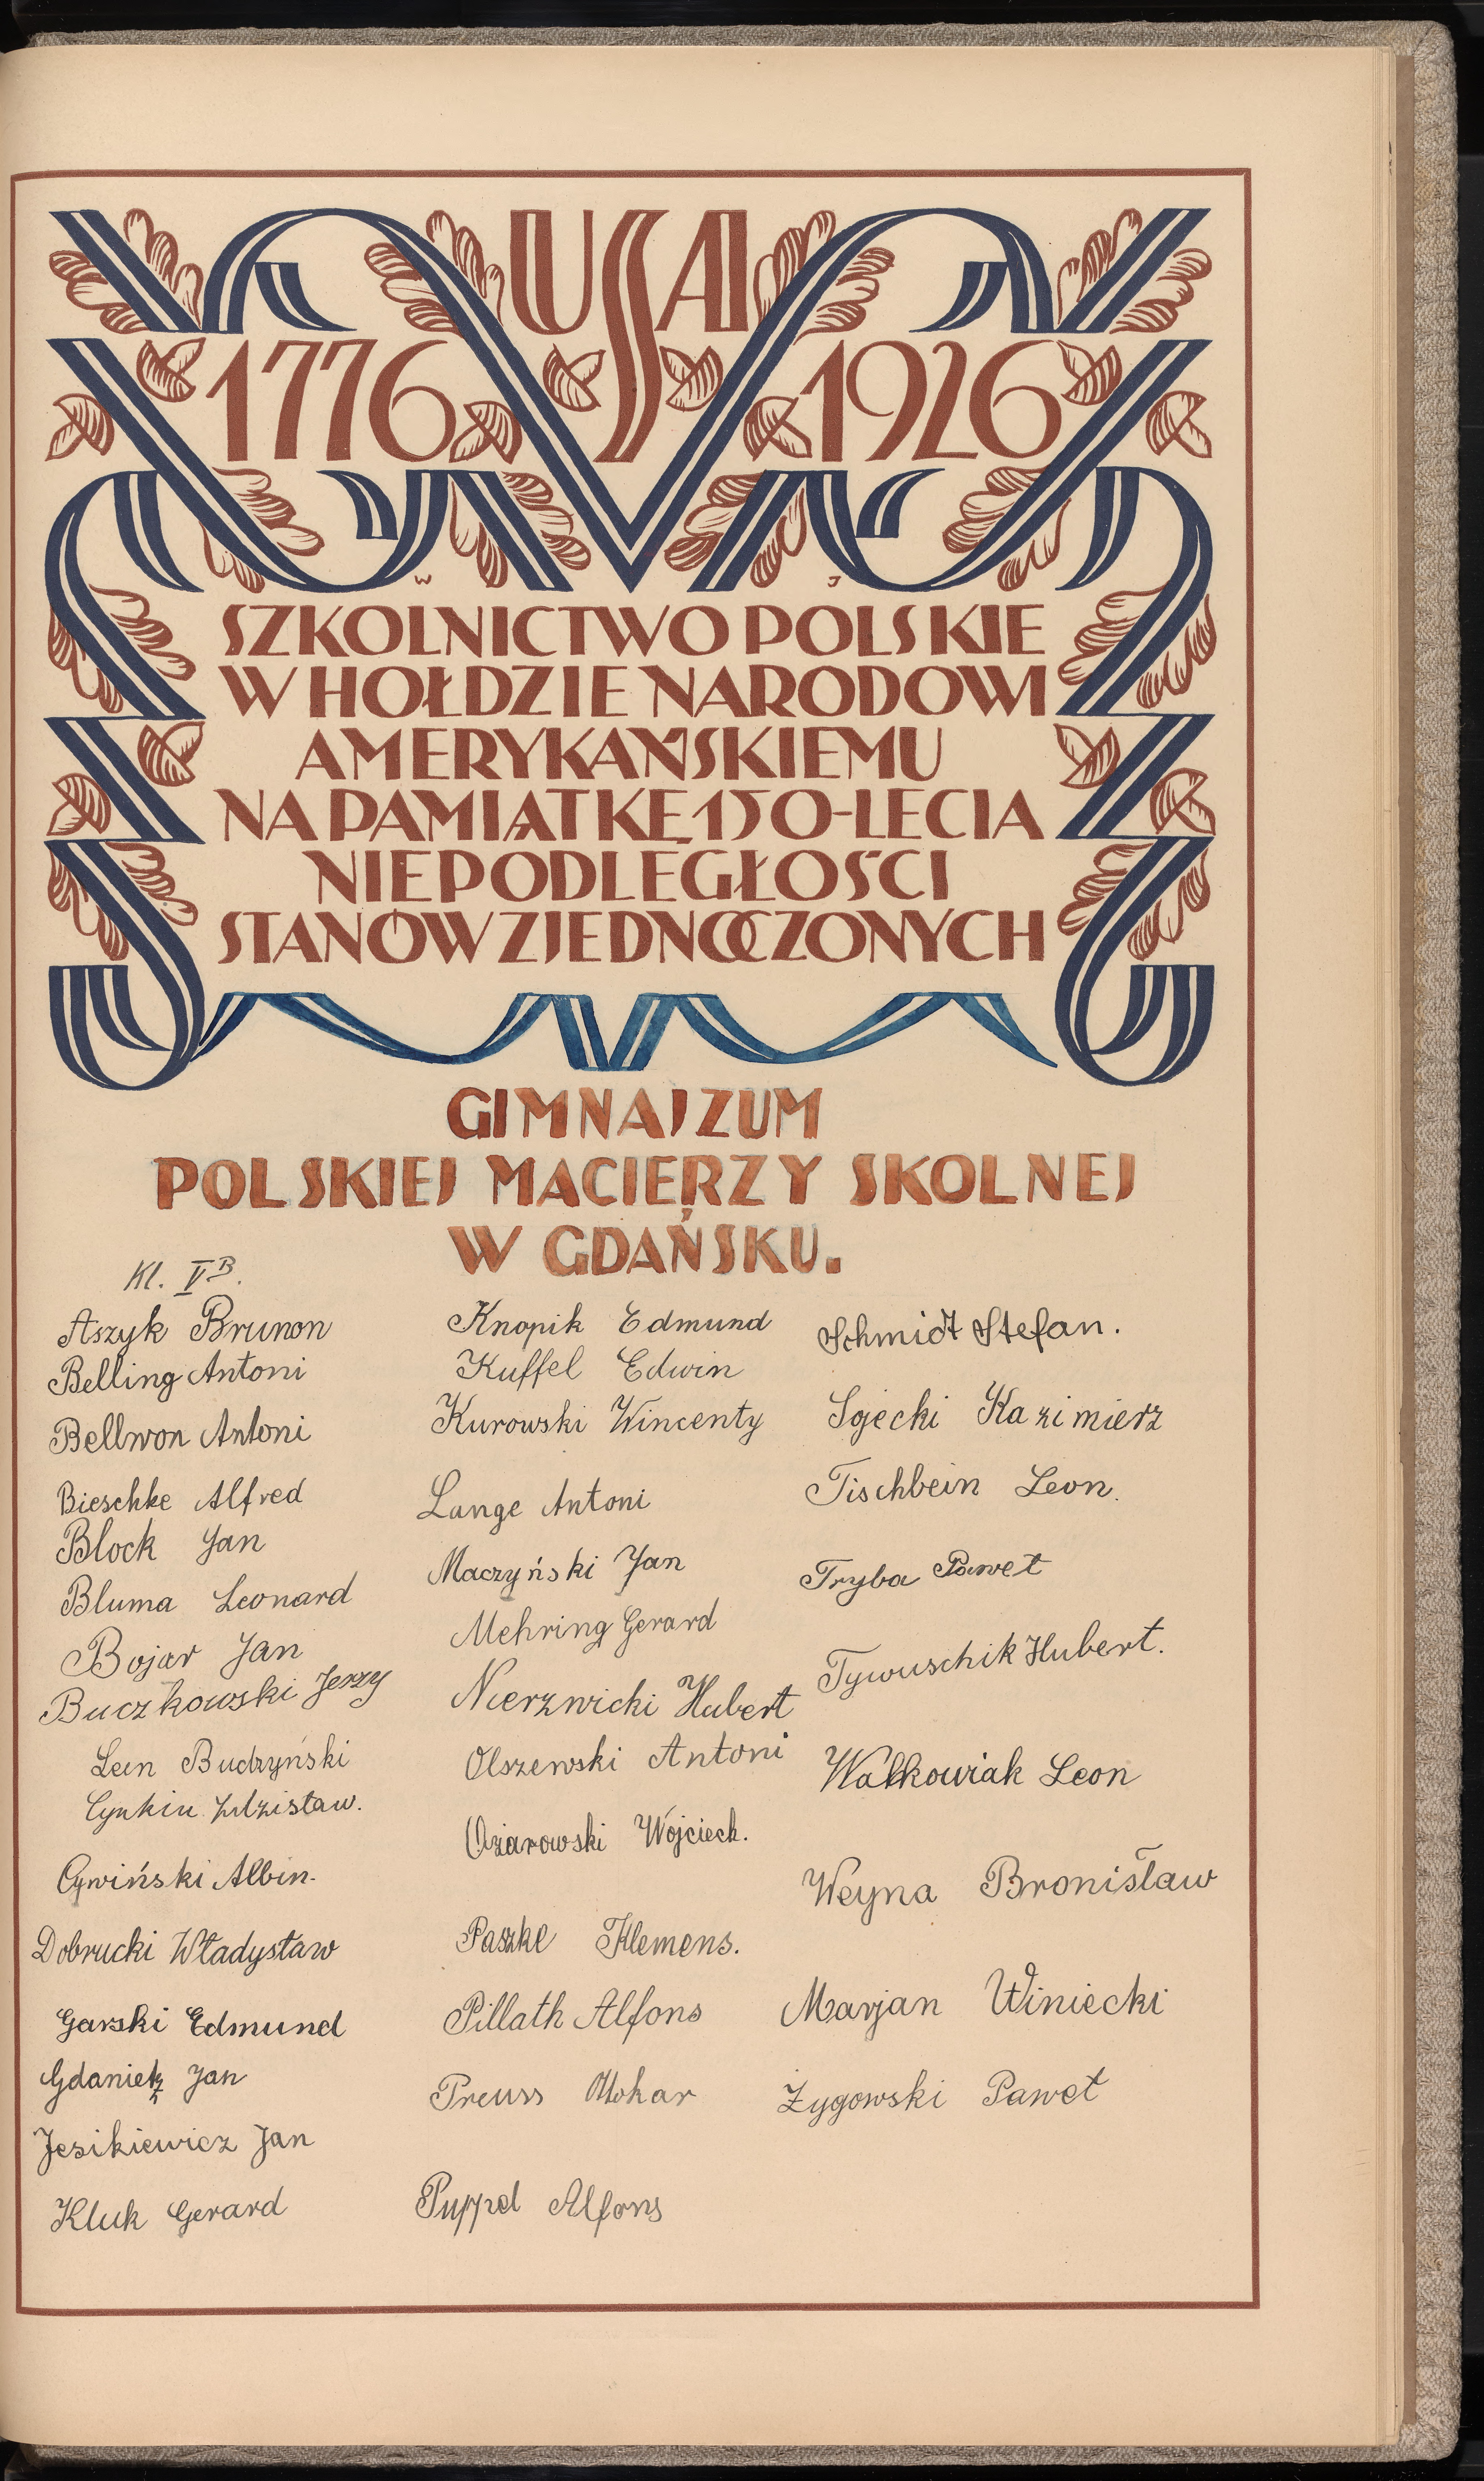 USA
1776 1926
W J
SZKOLNICTWO POLSKIE
W HOŁDZIE NARODOWI
AMERYKAŃSKIEMU
NA PAMIĄTKĘ 150-LECIA
NIEPODLEGŁOŚCI
STANÓW ZJEDNOCZONYCH
GIMNAJZUM
POLSKIEJ MACIERZY SKOLNEJ
W GDAŃSKU.
Kl. V B.
Aszyk Brunon
Belling Antoni
Bellwon Antoni
Bieschke Alfred
Block Jan
Bluma Leonard
Bojar Jan
Buczkowski Jerzy
Leon Budzyński
Cynkin Zdzisław.
Cywiński Albin.
Dobrucki Władysław
Garski Edmund
Gdanietz Jan
Jesikiewicz Jan
Kluk Gerard
Knopik Edmund
Kuffel Edwin
Kurowski Wincenty
Lange Antoni
Maczyński Jan
Mehring Gerard
Nierzwicki Hubert
Olszewski Antoni
Ożarowski Wojciech.
Paszke Klemens.
Pillath Alfons
Preuss Ottokar
Puppel Alfons
Schmidt Stefan.
Sojecki Kazimierz
Tischbein Leon.
Tryba Paweł
Tywuschik Hubert.
Walkowiak Leon
Weyna Bronisław
Marjan Winiecki
Żygowski Paweł